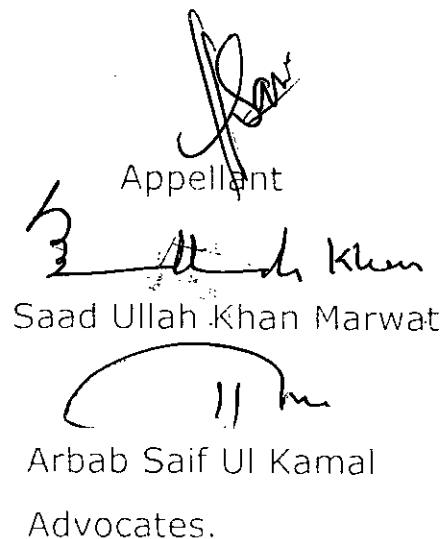 Appellant
Khan
Saad Ullah Khan Marwat
Arbab Saif Ul Kamal
Advocates.